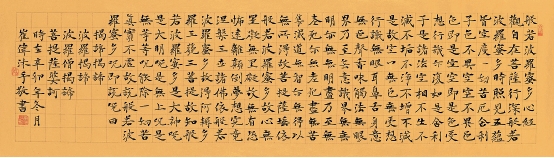 般若波羅蜜多心經
觀自在菩薩行深般若
波羅蜜多時照見五蘊
皆空度一切苦厄舍利
子色不異空空不異色
色即是空空即是色受
想行識亦復如是舍利
子是諸法空相不生不
滅不垢不淨不增不減
是故空中無色無受想
行識無眼耳鼻舌身意
無色聲香味觸法無眼
界乃至無意識界無無
明亦無無明盡乃至無
老死亦無老死盡無苦
集滅道無智亦無得以
無所得故菩提薩埵依
般若波羅蜜多故心無
罣礙無罣礙故無有恐
怖遠離顛倒夢想究竟
涅槃三世諸佛依般若
波羅蜜多故得阿耨多
羅三藐三菩提故知般
若波羅蜜多是大神呪
是大明呪是無上呪是
無等等呪能除一切苦
真實不虛故說般若波
羅蜜多呪即說呪曰
揭諦揭諦
波羅揭諦
波羅僧揭諦
菩提薩婆訶
時在辛卯年冬月
崔偉沐手敬書